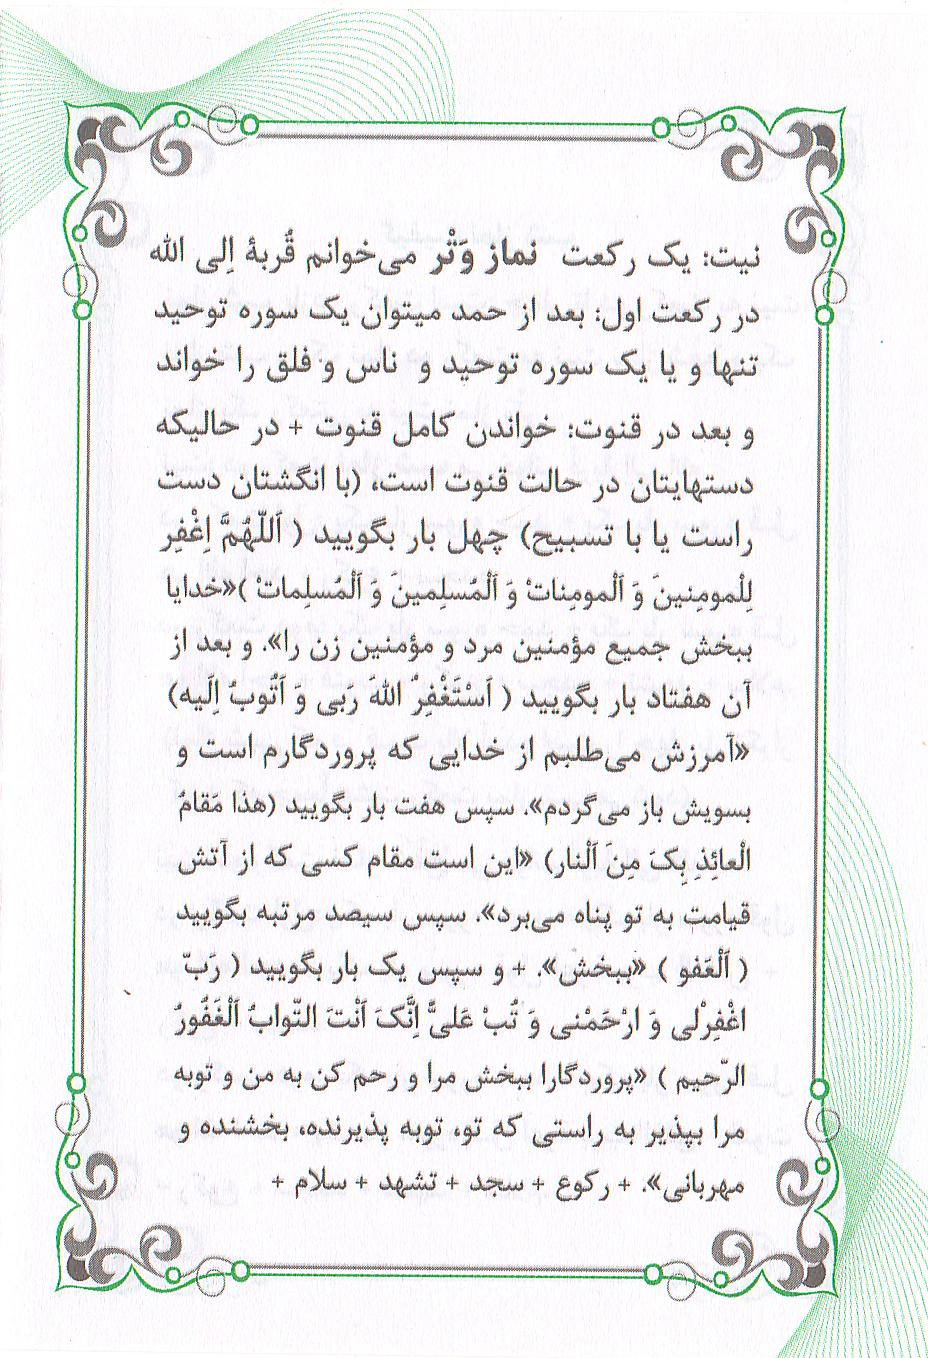 نیت: یک رکعت نماز وَتْر می‌خوانم قُربةً اِلی الله
در رکعت اول: بعد از حمد میتوان یک سوره توحید
تنها و یا یک سوره توحید و ناس و فلق را خواند
و بعد در قنوت: خواندن کامل قنوت + در حالیکه
دستهایتان در حالت قنوت است، (با انگشتان دست
راست یا با تسبیح) چهل بار بگویید ( اَللّهُمَّ اِغْفِر
لِلْمومِنینَ وَ اَلْمومِناتْ وَ اَلْمُسلِمینَ وَ اَلْمُسلِماتْ )«خدایا
ببخش جمیع مؤمنین مرد و مؤمنین زن را». و بعد از
آن هفتاد بار بگویید ( اَسْتَغْفِرُ اللهَ رَبی وَ اَتُوبُ اِلَیه)
«آمرزش می‌طلبم از خدایی که پروردگارم است و
بسویش باز می‌گردم». سپس هفت بار بگویید (هذا مَقامُ
الْعائِذِ بِکَ مِنَ اَلْنار) «این است مقام کسی که از آتش
قیامت به تو پناه می‌برد». سپس سیصد مرتبه بگویید
( اَلْعَفو ) «ببخش». + و سپس یک بار بگویید ( رَبّ
اغْفِرْلی وَ ارْحَمْنی وَ تُبْ عَلیَّ اِنَّکَ اَنْتَ التّوابُ اَلْغَفُورُ
الرّحیم ) «پروردگارا ببخش مرا و رحم کن به من و توبه
مرا بپذیر به راستی که تو، توبه پذیرنده، بخشنده و
مهربانی». + رکوع + سجد + تشهد + سلام +